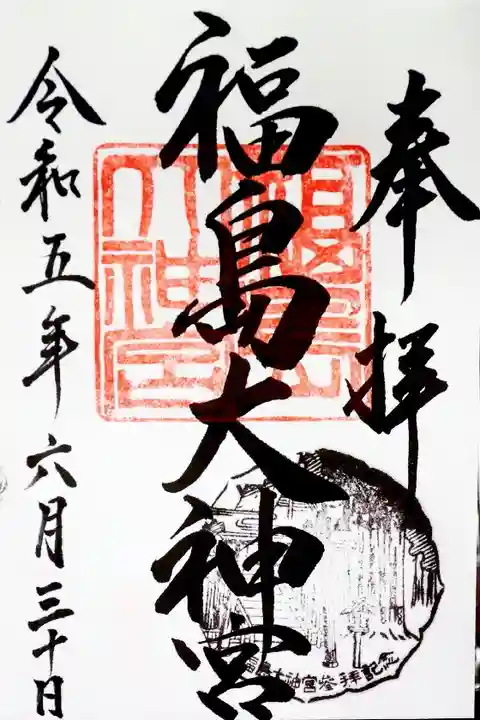 奉拝
福島大神宮
令和五年六月三十日
福島大神宮
福島大神宮参拝記念